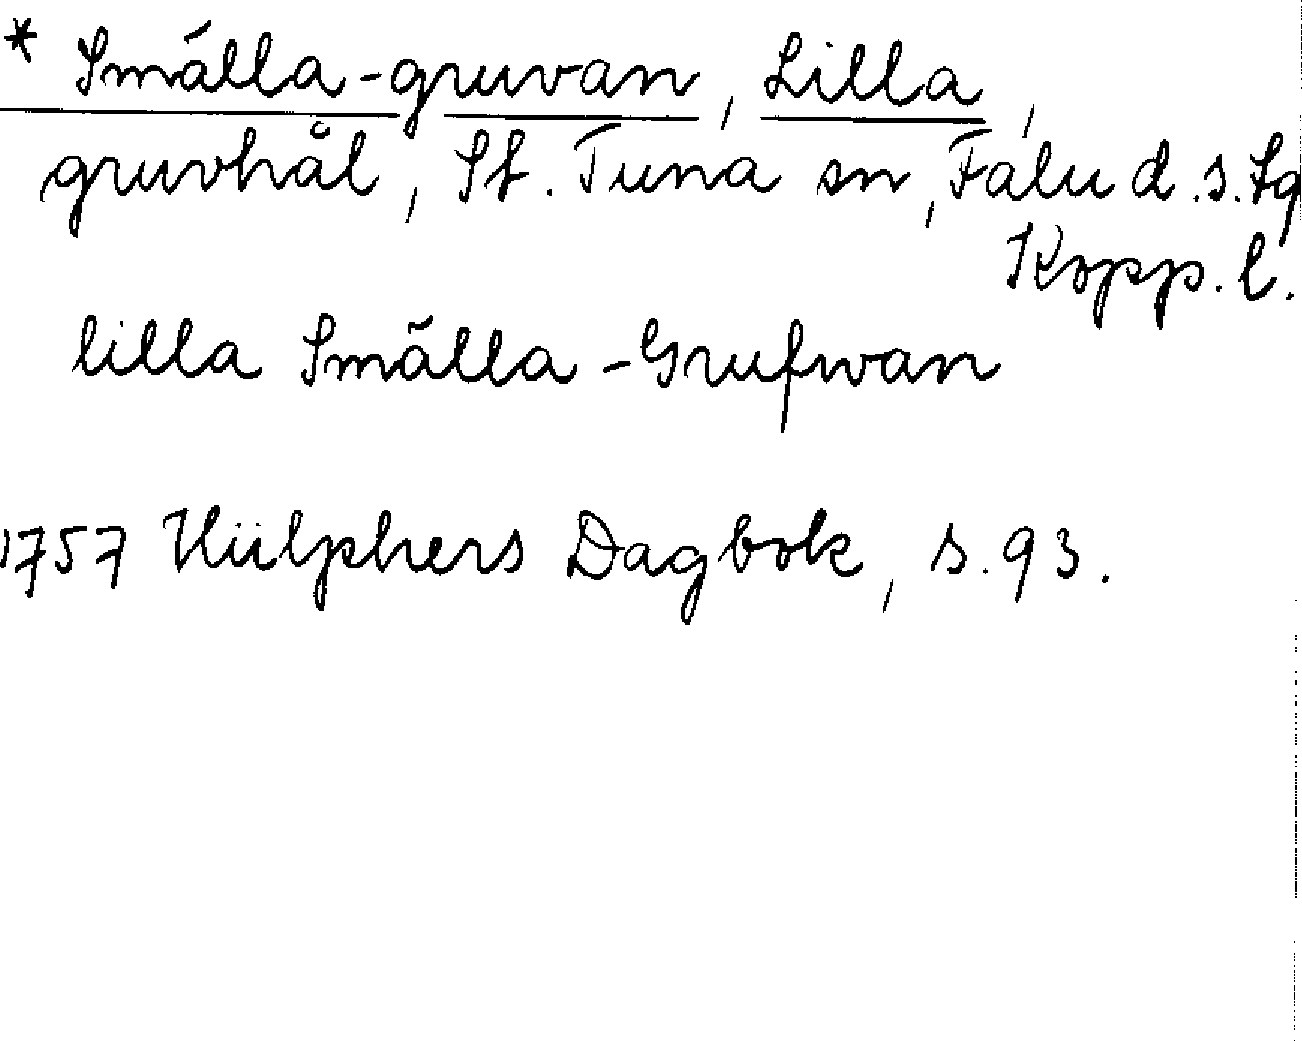 * Smälla-gruvan, Lilla,
gruvhål, St. Tuna sn, Falu d.s. Lg
Kopp. l.
lilla Smälla-Grufwan
1757 Hülphers Dagbok, s. 93.